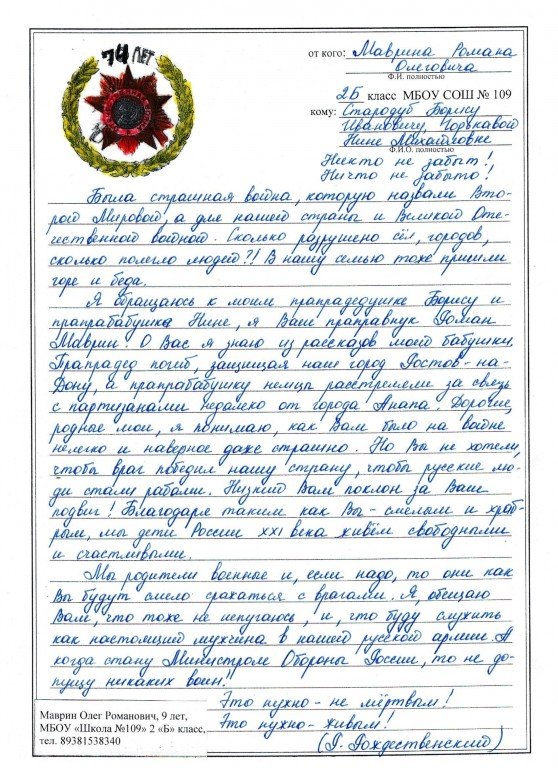 74 ЛЕТ
от кого: Маврина Романа
Олеговича
Ф.И. полностью
2Б класс МБОУ СОШ № 109
кому: Стародуб Борису
Ивановичу, Горькавой
Нине Михайловне
Ф.И.О. полностью
Никто не забыт!
Ничто не забыто!
Была страшная война, которую назвали Вто-
рой Мировой, а для нашей страны и Великой Оте-
чественной войной. Сколько разрушено сёл, городов,
сколько полегло людей?! В нашу семью тоже пришли
горе и беда.
Я обращаюсь к моим прапрадедушке Борису и
прапрабабушке Нине, я Ваш праправнук Роман
Маврин. О Вас я знаю из рассказов моей бабушки.
Прапрадед погиб, защищая наш город Ростов-на-
Дону, а прапрабабушку немцы расстреляли за связь
с партизанами недалеко от города Анапа. Дорогие,
родные мои, я понимаю, как Вам было на войне
нелегко и наверное даже страшно. Но Вы не хотели,
чтобы враг победил нашу страну, чтобы русские лю-
ди стали рабами. Низкий Вам поклон за Ваш
подвиг! Благодаря таким как Вы - смелым и храб-
рым, мы дети России XXI века живём свободными
и счастливыми.
Мы родители военные и, если надо, то они как
Вы будут смело сражаться с врагами. Я, обещаю
Вам, что тоже не испугаюсь, и, что буду служить
как настоящий мужчина в нашей русской армии. А
когда стану Министром Обороны России, то не до-
пущу никаких войн!
Это нужно - не мёртвым!
Это нужно - живым!
(Р. Рождественский)
Маврин Олег Романович, 9 лет,
МБОУ «Школа №109» 2 «Б» класс,
тел. 89381538340